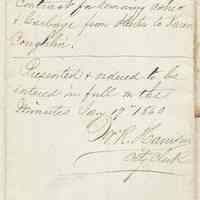 Contract for removing ashes
& Garbage from Streets to
Coughlin.
Presented & ordered to be
entered in full in the
Minutes 19th 1860
City Clerk